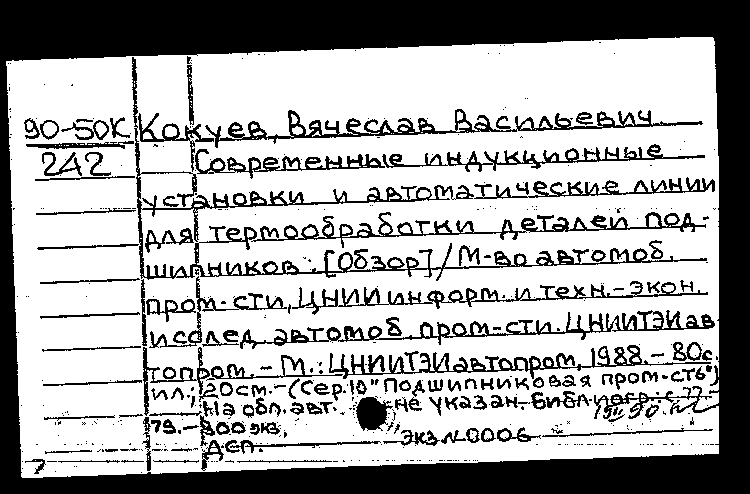 90-50К Кокуев, Вячеслав Васильевич.
242 Современные индукционные
установки и автоматические линии
для термообработки деталей под-
шипников: [Обзор] / М-во автомоб.
пром-сти, ЦНИИ информ. и техн.-экон.
исслед. автомоб. пром-сти. ЦНИИТЭИав-
топром. - М.: ЦНИИТЭИавтопром, 1988. - 80с.
ил.; 20см. - (Сер.10 "Подшипниковая пром-сть")
На обл. авт. не указан. Библиогр.: с.77-
79. - 300 экз.
ДСП. Экз N0006